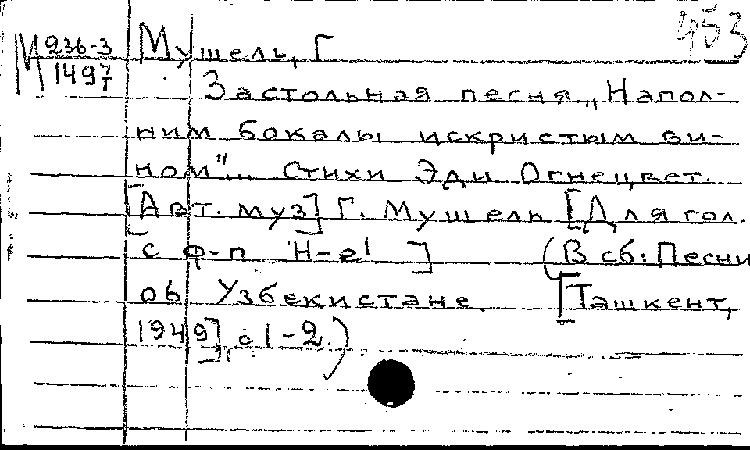 453
М 236-3 Мушель, Г
1497
Застольная песня „Напол-
ним бокалы искристым ви-
ном"... Стихи Эди Огнецвет.
[Авт. муз] Г. Мушель [Для гол.
с ф-п H-e¹] (В сб: Песни
об Узбекистане. [Ташкент,
1949], с 1-2.)